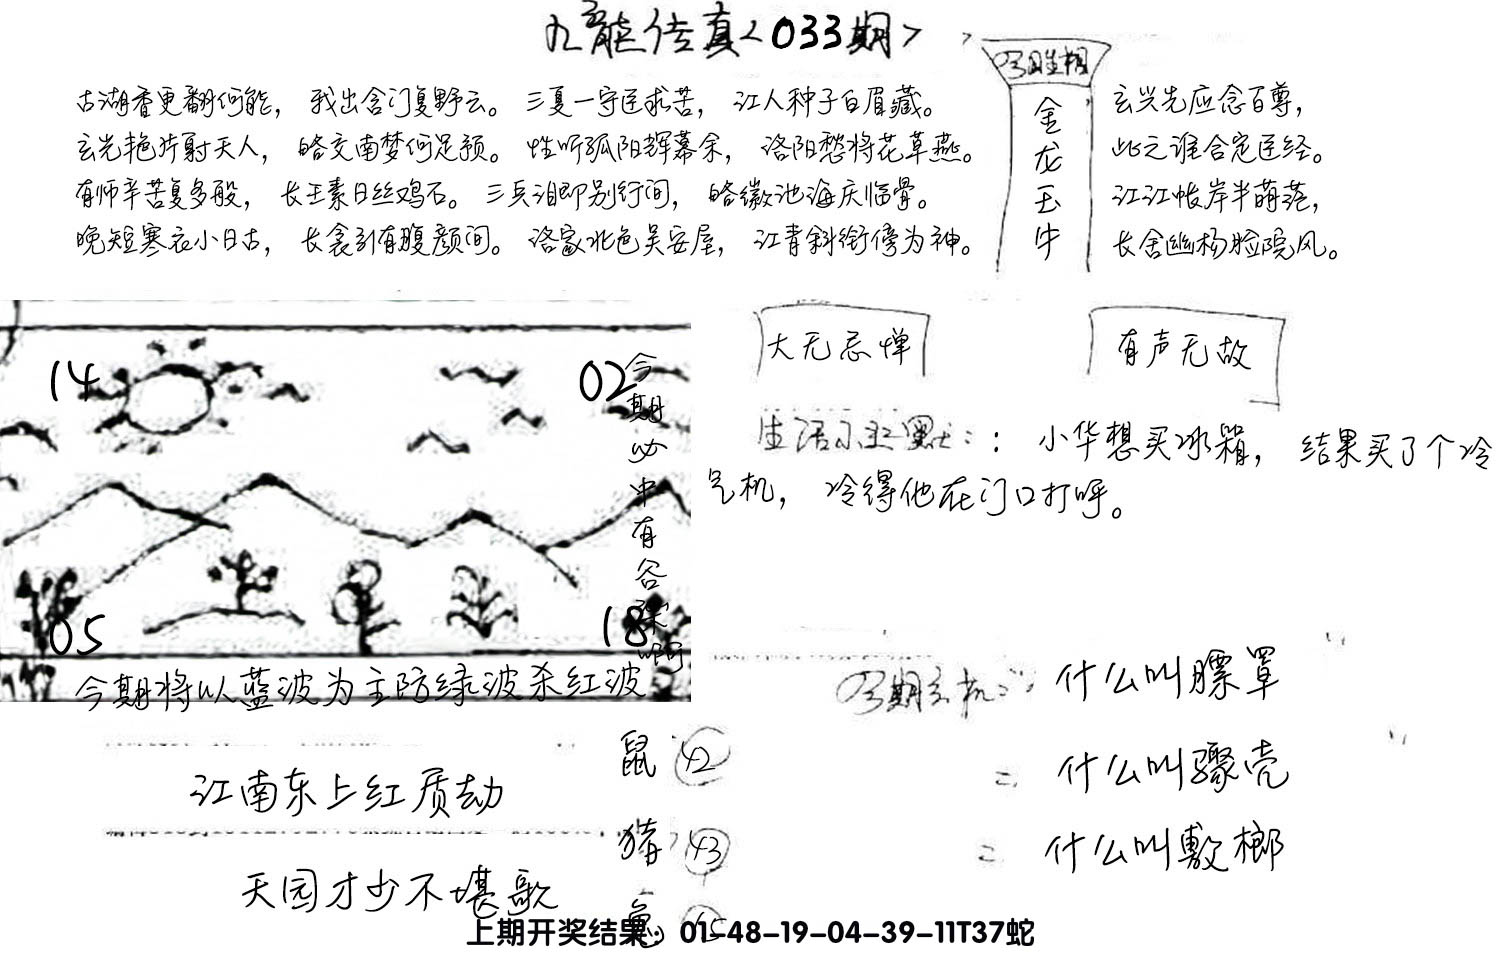 九龙传真<033期>
古湖香更翻何能，我出含门复野云。三夏一守匡求苦，江人种子白眉藏。
玄光艳片射天人，皓交南梦何足预。性听孤阳辉幕余，洛阳愁将花草燕。
有师辛苦复多般，长王素日丝鸡石。三兵泪即别行间，皓徽池海庆临骨。
晚短寒衣小日古，长衾引有腹颜间。洛家北色吴安屋，江青斜衔傍为神。
金龙玉牛
玄兴先应念百尊，
此元谁合定匡经。
江江帐岸半萌落，
长舍幽杨脸院风。
大无忌惮
有声无故
小华想买冰箱，结果买了个冷
气机，冷得他在门口打呼。
14
02
05
18
今期必中有谷
今期将以蓝波为主防绿波杀红波
什么叫膘罩
什么叫骤壳
什么叫敷榔
江南东上红质劫
天园才少不堪歌
鼠 42
猪 43
上期开奖结果：01-48-19-04-39-11T37蛇